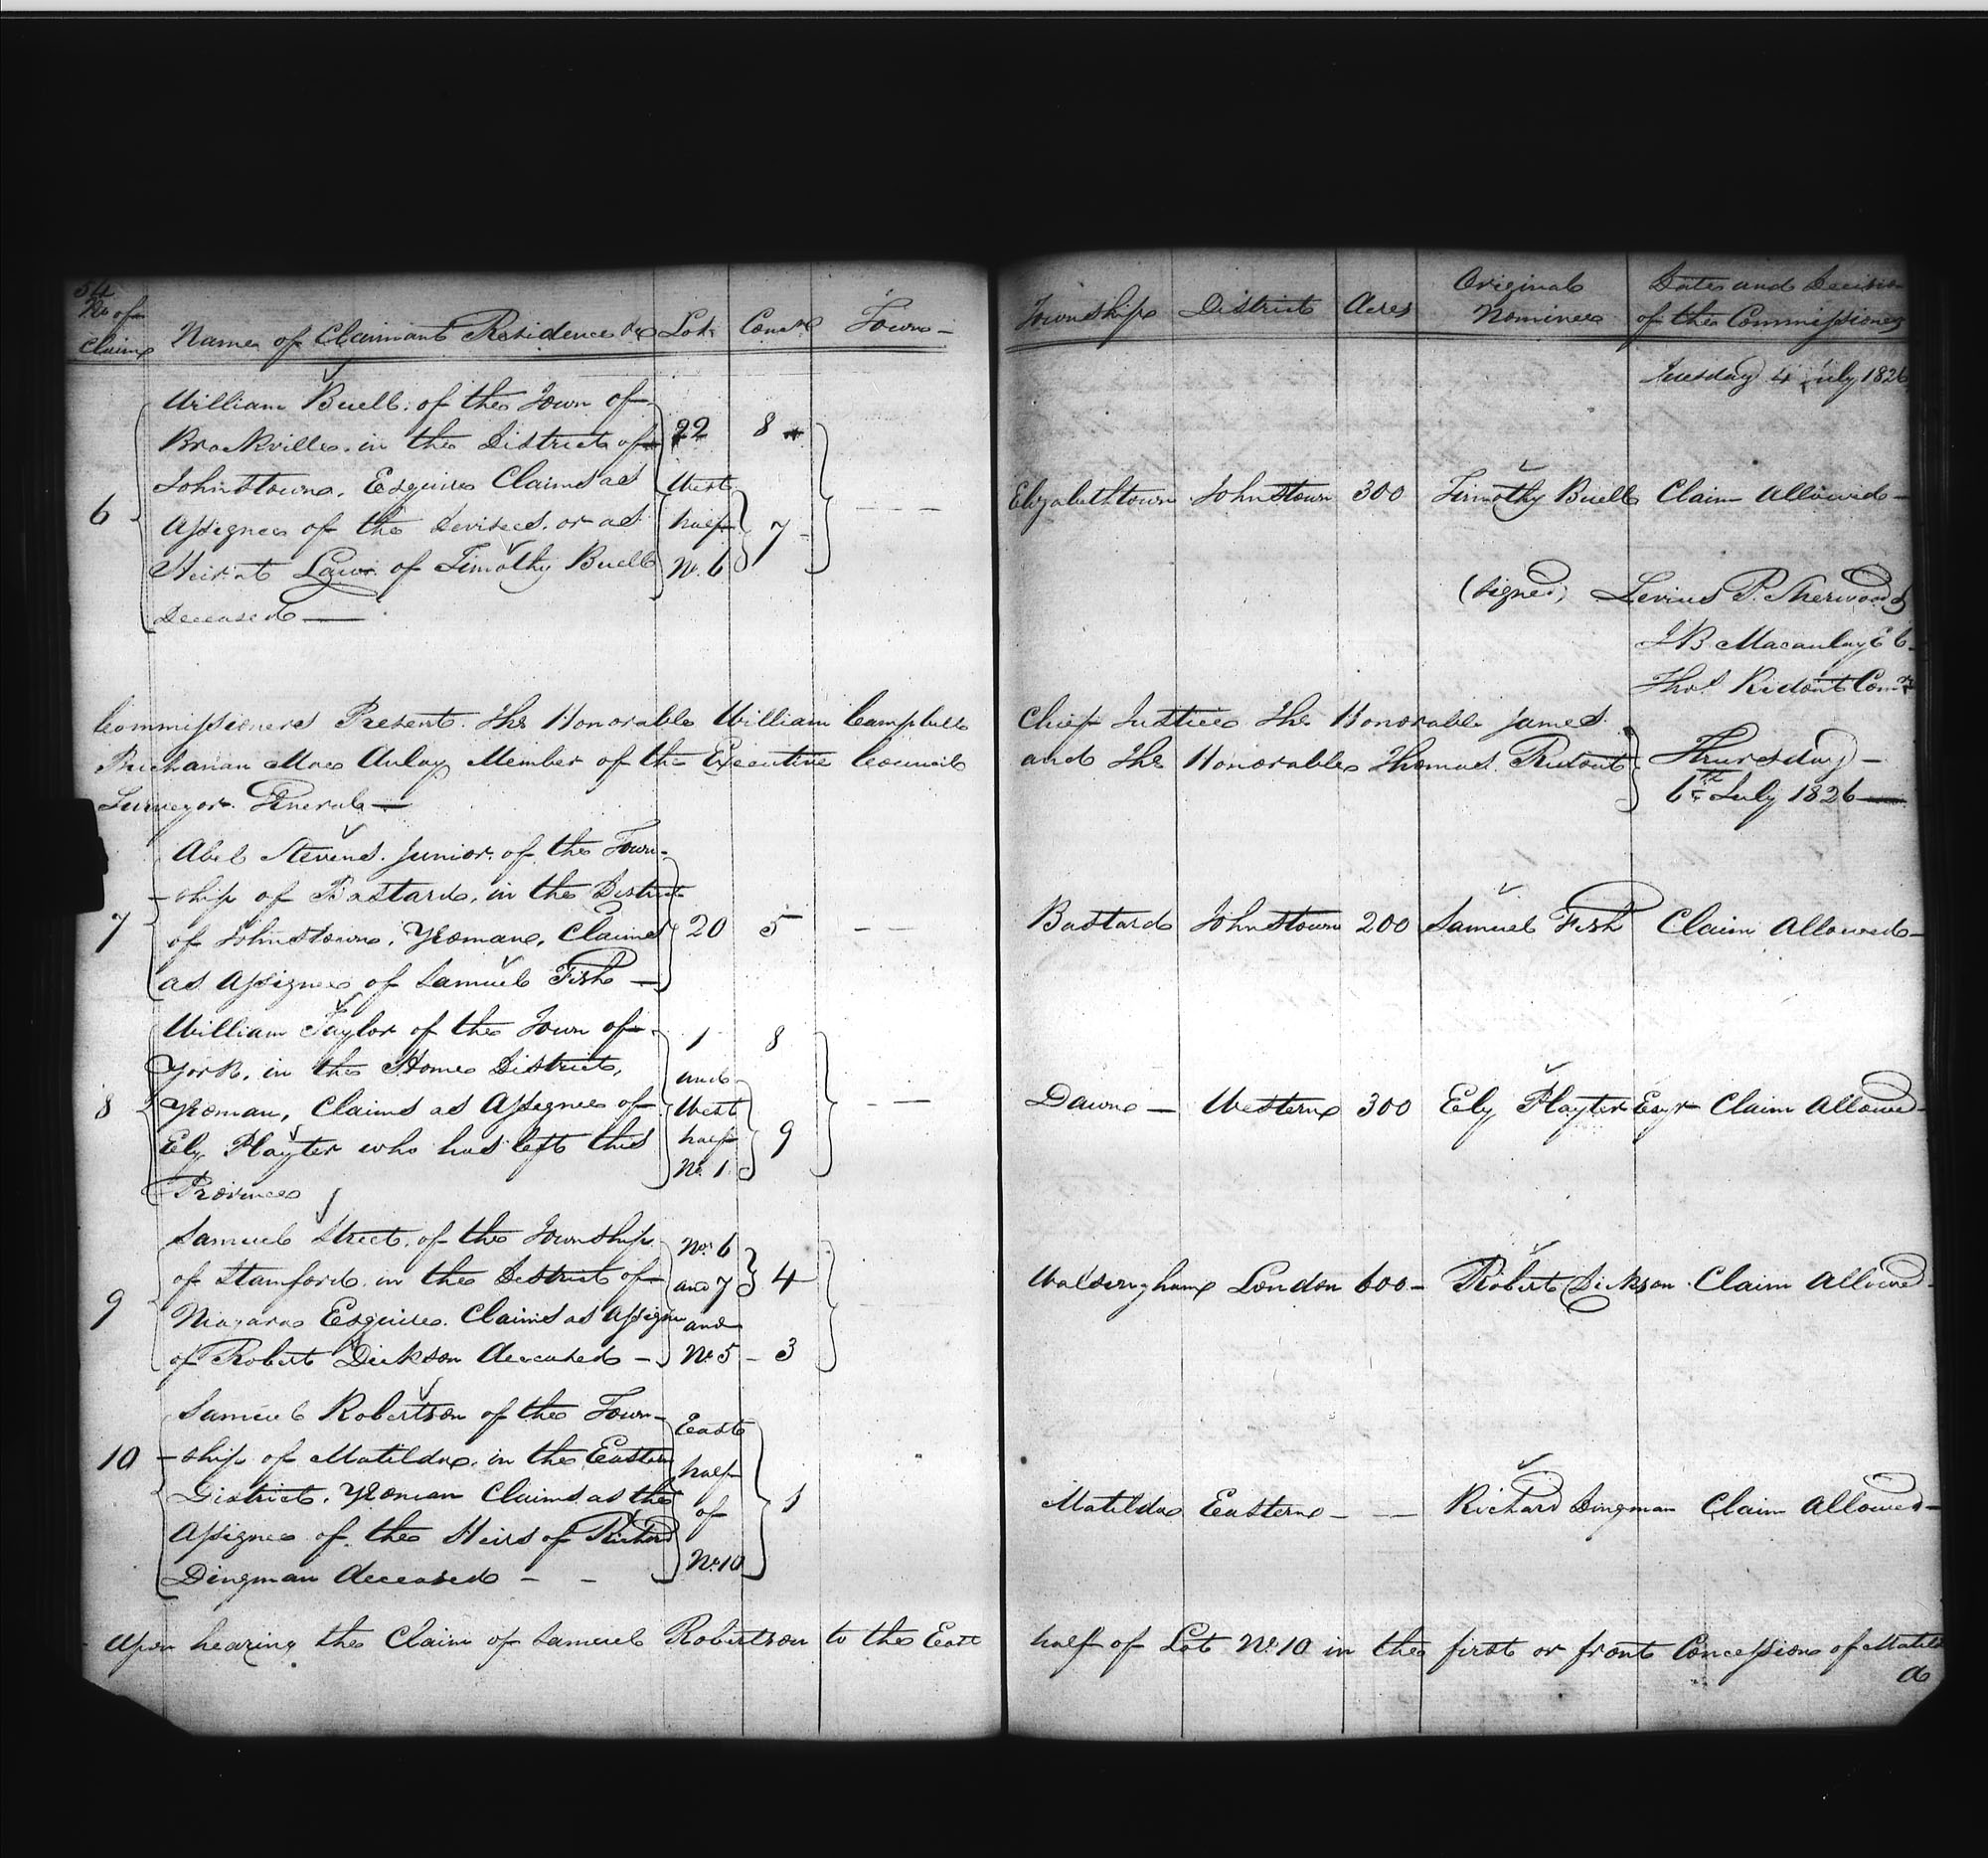 54
No of Claim Name of Claimant Residence &c Lot Concn Town Township District Acres Original Nominee Date and Decision of the Commissioners
Tuesday 4 July 1826
6 William Buell of the Town of
Brockville in the District of
Johnstown, Esquire Claims as
Assignee of the Devisees or as
Heir at Law of Timothy Buell
deceased
22 8
West
half 7
No. 6
Elizabethtown Johnstown 300 Timothy Buell Claim Allowed
(signed) Levius P. Sherwood J
J B Macaulay E C
Thos Ridout Comr
Commissioners Present. The Honorable William Campbell Chief Justice The Honorable James
Buchanan Mac Aulay Member of the Executive Council and The Honorable Thomas Ridout
Surveyor General
Thursday
6th July 1826
7 Abel Stevens Junior of the Town-
-ship of Bastard, in the District
of Johnstown, Yeoman, Claims
as Assignee of Samuel Fish
20 5
Bastard Johnstown 200 Samuel Fish Claim Allowed
8 William Taylor of the Town of
York, in the Home District,
Yeoman, Claims as Assignee of
Ely Playter who has left this
Province
1 8
and
West
half 9
No. 1
Dawn Western 300 Ely Playter Esqr Claim Allowed
9 Samuel Street of the Township
of Stamford in the District of
Niagara Esquire Claims as Assignee
of Robert Dickson deceased
Nos 6
and 7 4
and
No 5 3
Walsingham London 600 Robert Dickson Claim Allowed
10 Samuel Robertson of the Town-
-ship of Matilda, in the Eastern
District, Yeoman Claims as the
Assignee of the Heirs of Richard
Dingman deceased
East
half
of 1
No. 10
Matilda Eastern Richard Dingman Claim Allowed
Upon hearing the Claim of Samuel Robertson to the East half of Lot No. 10 in the first or front Concession of Matild
a